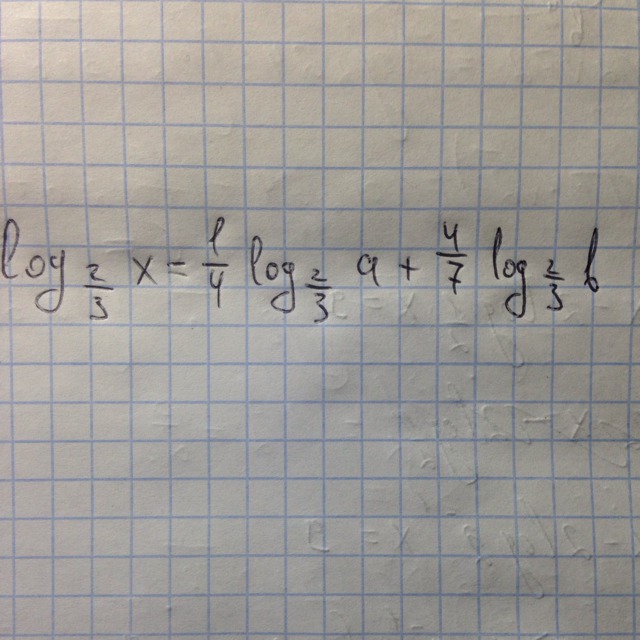 log_{2/3} x = 1/4 log_{2/3} a + 4/7 log_{2/3} b